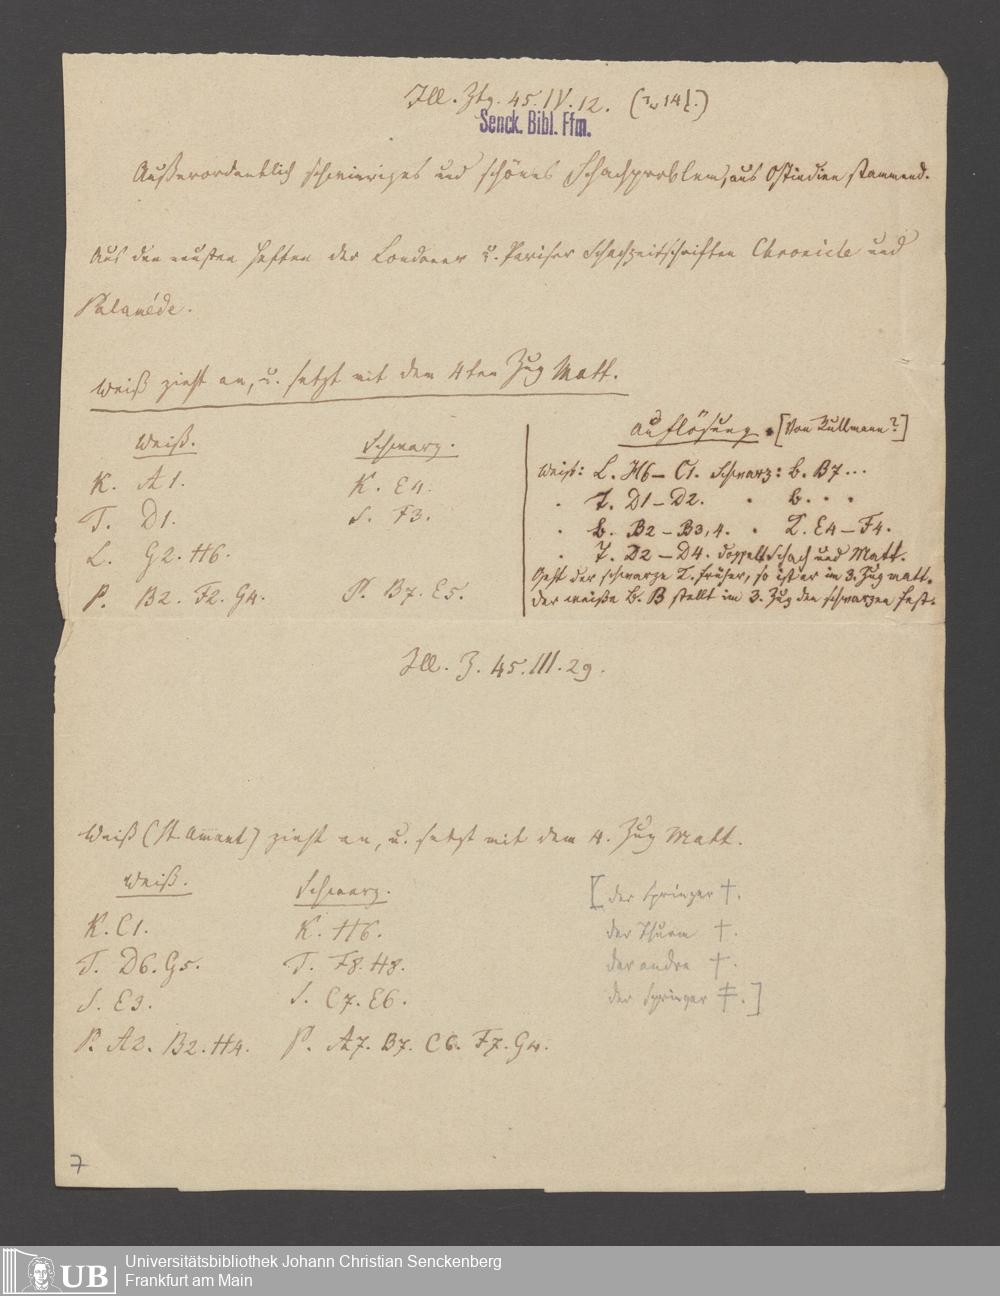 Ill. Ztg. 45. IV. 12.
Senck. Bibl. Ffm.
Außerordentlich schwieriges und schönes Schachproblem, aus Ostindien stammend.
Aus den neusten Heften der Londoner u. Pariser Schachzeitschriften Chronicle und
Palamède.
Weiß zieht an, u. setzt mit dem 4ten Zug Matt.
Weiß. Schwarz.
K. A1. K. E4.
T. D1. S. F3.
L. G2. H6.
P. B2. F2. G4. P. B7. E5.
Auflösung. [Von Kullmann?]
Weiß: L. H6 – C1. Schwarz: b. B7...
" T. D1 – D2. " b. . .
" b. B2 – B3,4. " K. E4 – F4.
" T. D2 – D4. doppelt Schach und Matt.
Geht der schwarze K. früher, so ist er im 3. Zug matt.
Der weiße b. B stellt im 3. Zug den schwarzen fest.
Ill. Z. 45. III. 29.
Weiß (St. Amant) zieht an, u. setzt mit dem 4. Zug Matt.
Weiß. Schwarz.
K. C1. K. H6.
T. D6. G5. T. F8. H8.
S. E3. S. C7. E6.
P. A2. B2. H4. P. A7. B7. C6. F7. G4.
[der Springer †.
der Thurm †.
der andre †.
der Springer ‡.]
7
UB
Universitätsbibliothek Johann Christian Senckenberg
Frankfurt am Main